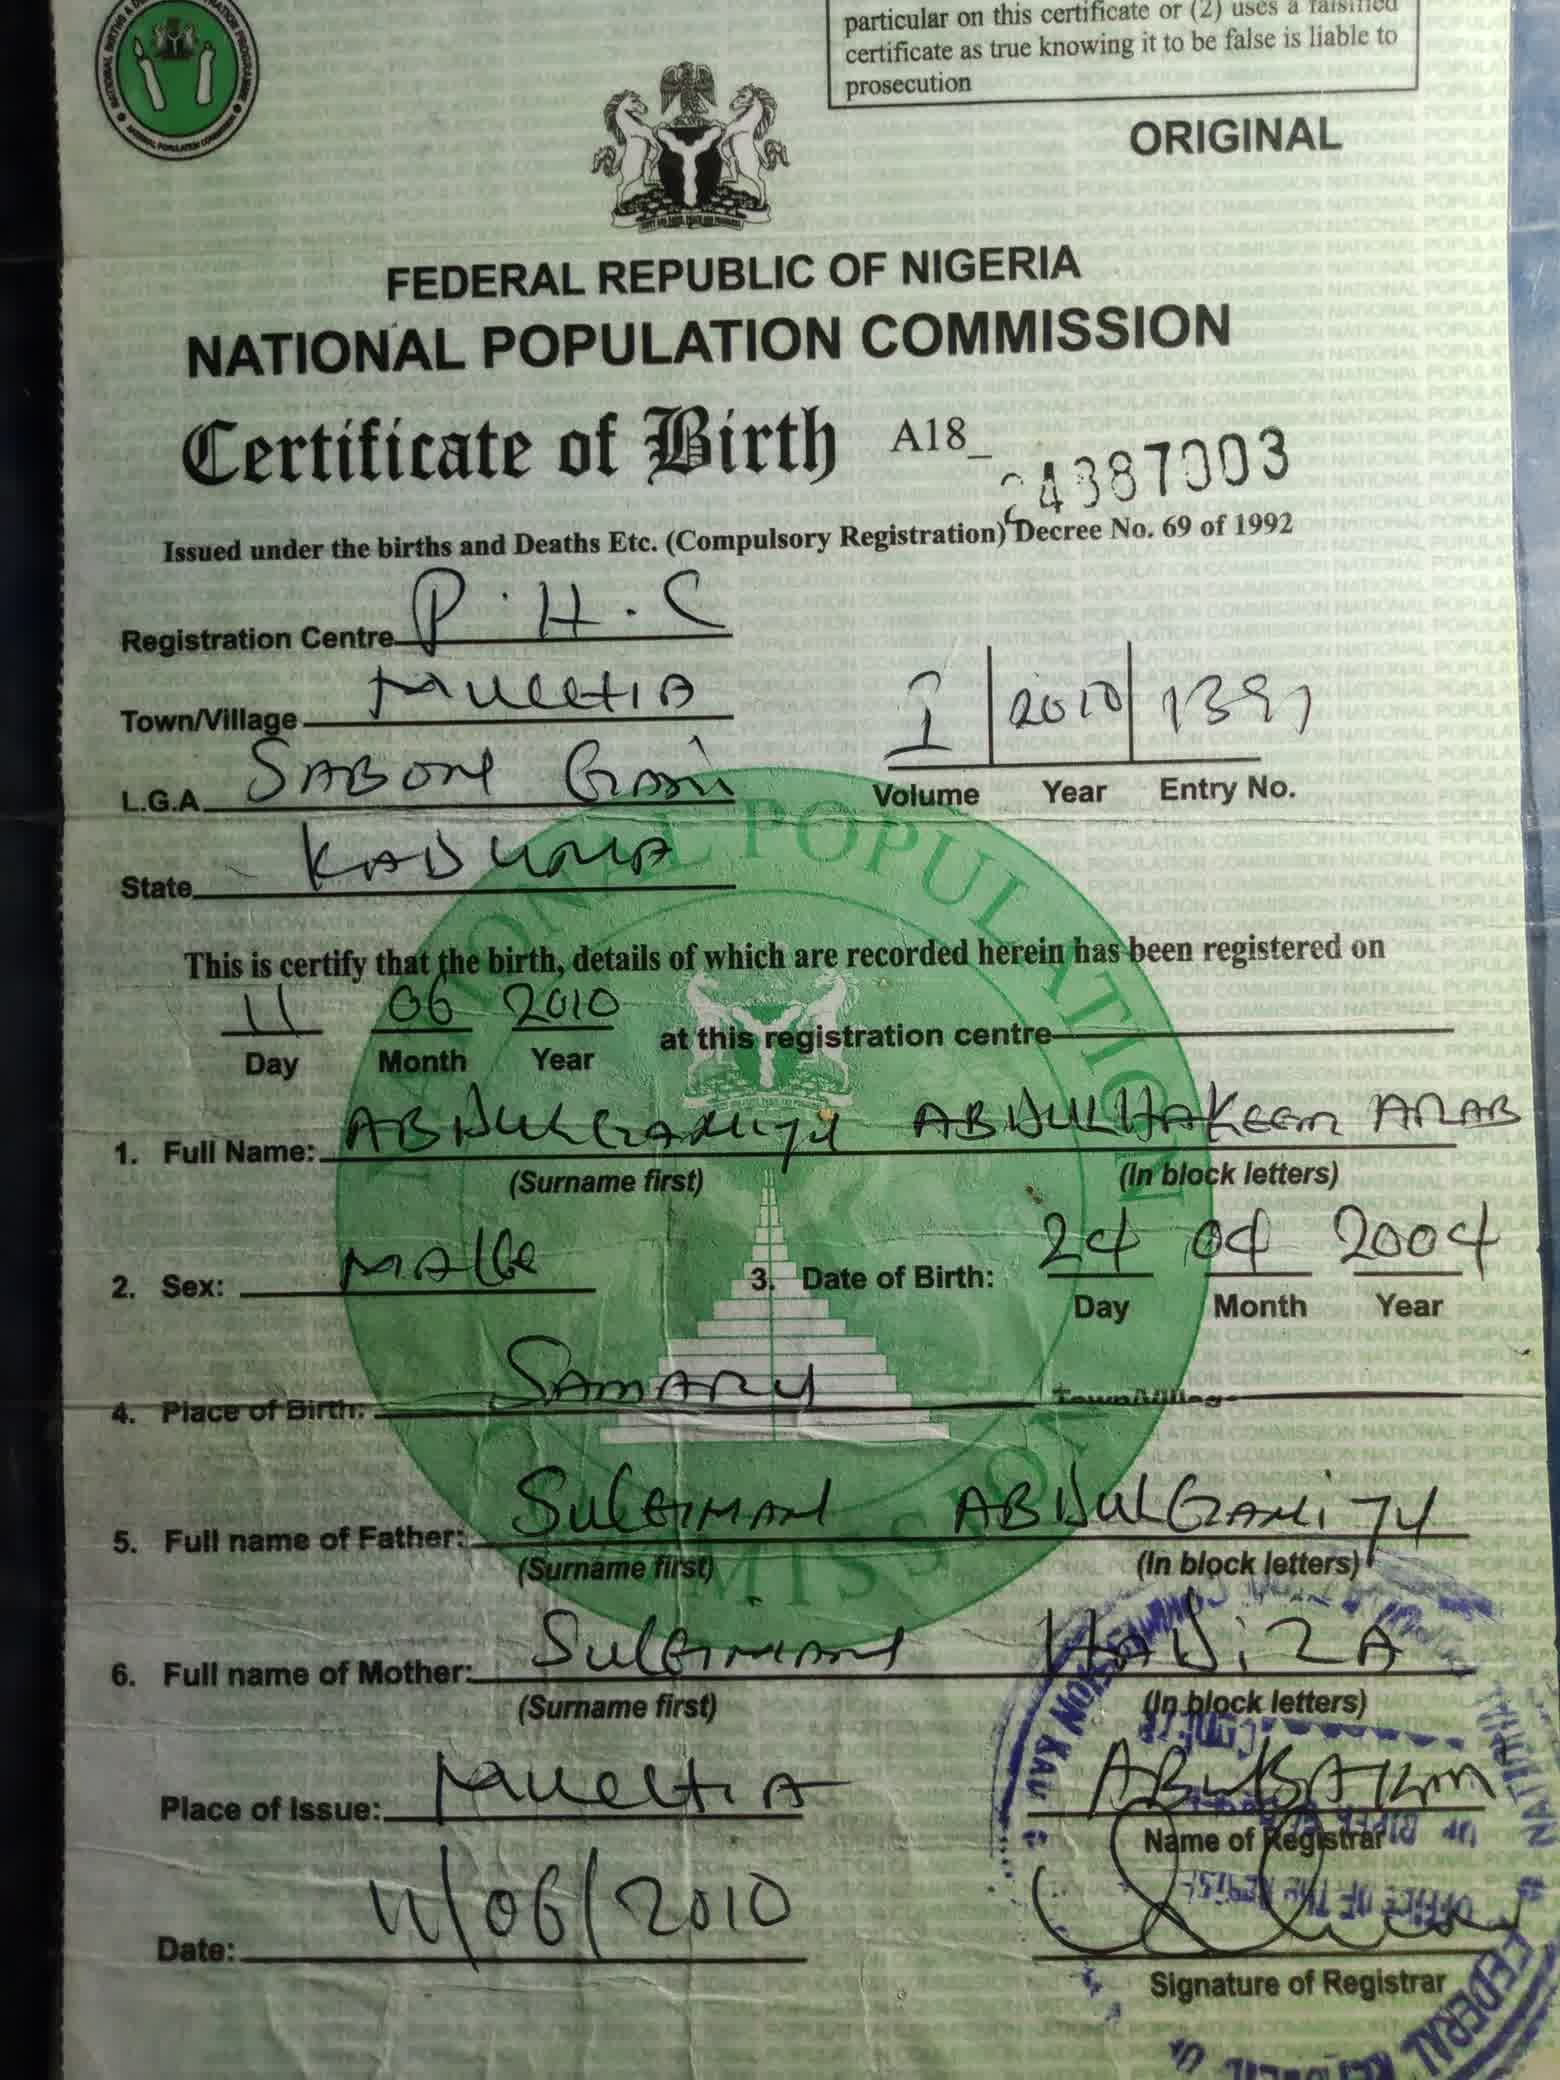 particular on this certificate or (2) uses a falsified
certificate as true knowing it to be false is liable to
prosecution
ORIGINAL
FEDERAL REPUBLIC OF NIGERIA
NATIONAL POPULATION COMMISSION
Certificate of Birth A18_ 24387003
Issued under the births and Deaths Etc. (Compulsory Registration) Decree No. 69 of 1992
Registration Centre P.H.C
Town/Village MUCHIA
L.G.A SABON GARI
State KADUNA
I 2010 1391
Volume Year Entry No.
This is certify that the birth, details of which are recorded herein has been registered on
11 06 2010 at this registration centre
Day Month Year
1. Full Name: ABDULGANIYU ABDULHAKEEM ARAB
(Surname first) (In block letters)
2. Sex: MALE 3. Date of Birth: 24 04 2004
Day Month Year
4. Place of Birth: SAMARU Town/Village
5. Full name of Father: SULEIMAN ABDULGANIYU
(Surname first) (In block letters)
6. Full name of Mother: SULEIMAN HADIZA
(Surname first) (In block letters)
Place of Issue: MUCHIA
Name of Registrar
Date: 11/06/2010
Signature of Registrar